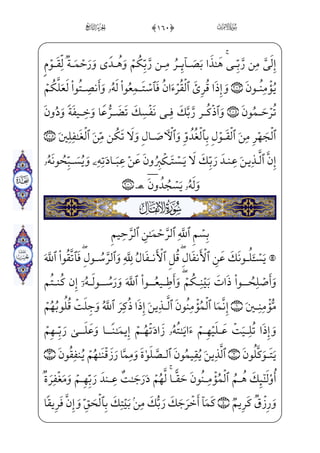 إِلَيَّ مِن رَّبِّي ۚ هَٰذَا بَصَآئِرُ مِن رَّبِّكُمْ وَهُدًى وَرَحْمَةٌ لِّقَوْمٍ
يُؤْمِنُونَ ۝٢٠٣ وَإِذَا قُرِئَ ٱلْقُرْءَانُ فَٱسْتَمِعُوا۟ لَهُۥ وَأَنصِتُوا۟ لَعَلَّكُمْ
تُرْحَمُونَ ۝٢٠٤ وَٱذْكُر رَّبَّكَ فِى نَفْسِكَ تَضَرُّعًا وَخِيفَةً وَدُونَ
ٱلْجَهْرِ مِنَ ٱلْقَوْلِ بِٱلْغُدُوِّ وَٱلْءَاصَالِ وَلَا تَكُن مِّنَ ٱلْغَٰفِلِينَ ۝٢٠٥
إِنَّ ٱلَّذِينَ عِندَ رَبِّكَ لَا يَسْتَكْبِرُونَ عَنْ عِبَادَتِهِۦ وَيُسَبِّحُونَهُۥ
وَلَهُۥ يَسْجُدُونَ ۩ ۝٢٠٦
سُورَةُ الأَنفَالِ
بِسْمِ ٱللَّهِ ٱلرَّحْمَٰنِ ٱلرَّحِيمِ
۞ يَسْـَٔلُونَكَ عَنِ ٱلْأَنفَالِ ۖ قُلِ ٱلْأَنفَالُ لِلَّهِ وَٱلرَّسُولِ ۖ فَٱتَّقُوا۟ ٱللَّهَ
وَأَصْلِحُوا۟ ذَاتَ بَيْنِكُمْ ۖ وَأَطِيعُوا۟ ٱللَّهَ وَرَسُولَهُۥٓ إِن كُنتُم
مُّؤْمِنِينَ ۝١ إِنَّمَا ٱلْمُؤْمِنُونَ ٱلَّذِينَ إِذَا ذُكِرَ ٱللَّهُ وَجِلَتْ قُلُوبُهُمْ
وَإِذَا تُلِيَتْ عَلَيْهِمْ ءَايَٰتُهُۥ زَادَتْهُمْ إِيمَٰنًا وَعَلَىٰ رَبِّهِمْ
يَتَوَكَّلُونَ ۝٢ ٱلَّذِينَ يُقِيمُونَ ٱلصَّلَوٰةَ وَمِمَّا رَزَقْنَٰهُمْ يُنفِقُونَ ۝٣
أُو۟لَٰٓئِكَ هُمُ ٱلْمُؤْمِنُونَ حَقًّا ۚ لَّهُمْ دَرَجَٰتٌ عِندَ رَبِّهِمْ وَمَغْفِرَةٌ
وَرِزْقٌ كَرِيمٌ ۝٤ كَمَآ أَخْرَجَكَ رَبُّكَ مِنۢ بَيْتِكَ بِٱلْحَقِّ وَإِنَّ فَرِيقًا
﴿١٦٠﴾